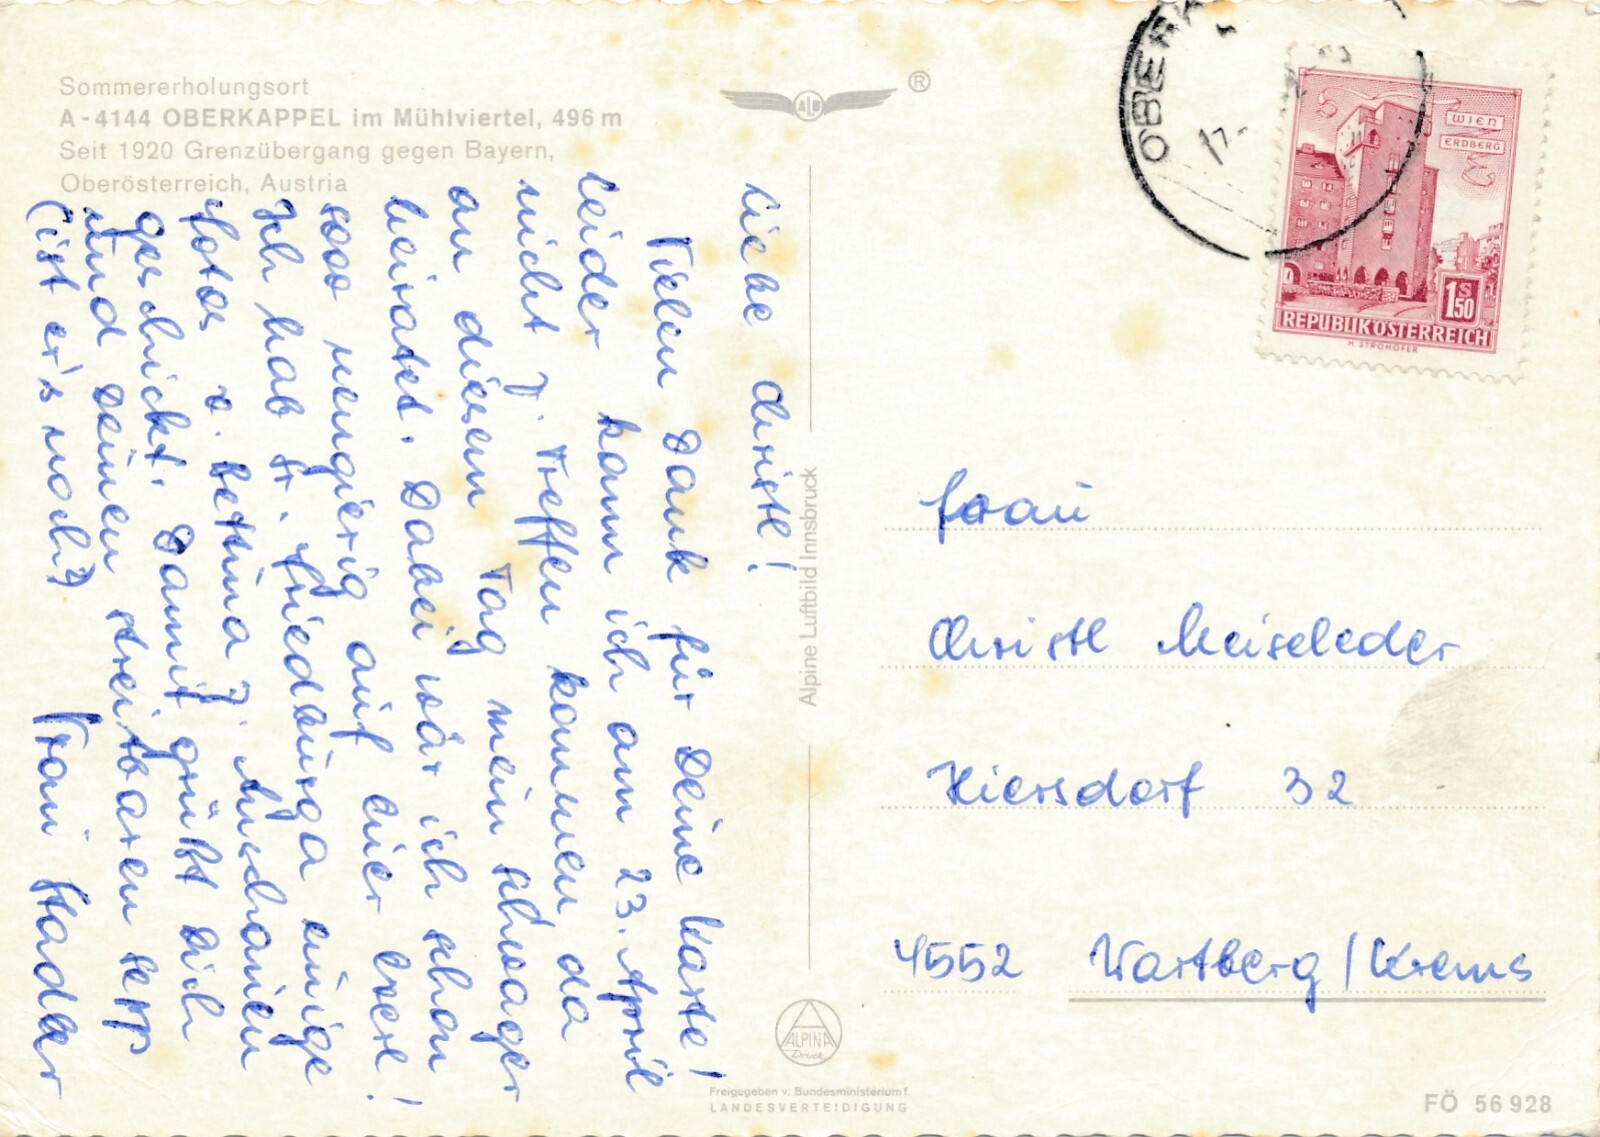 Sommererholungsort
A-4144 OBERKAPPEL im Mühlviertel, 496 m
Seit 1920 Grenzübergang gegen Bayern,
Oberösterreich, Austria
®
Liebe Christl!
Vielen Dank für Deine Karte!
Leider kann ich am 23. April
nicht z. Treffen kommen da
an diesem Tag mein Schwager
heiratet. Dabei wär ich schon
sooo neugierig auf eier Leit!
Ich hab Fr. Friedburga einige
Fotos v. Bettina z. Anschauen
geschickt. Damit grüßt Dich
und Deinen streitbaren Sepp
(ist er's noch?)
Frani Stadler
Alpine Luftbild Innsbruck
ALPINA
Druck
Freigegeben v. Bundesministerium f.
LANDESVERTEIDIGUNG
OBERKA
17.
WIEN
ERDBERG
1 S 50
REPUBLIK ÖSTERREICH
H. STROHOFER
Frau
Christl Meiseleder
Hiersdorf 32
4552 Wartberg/Krems
FÖ 56 928